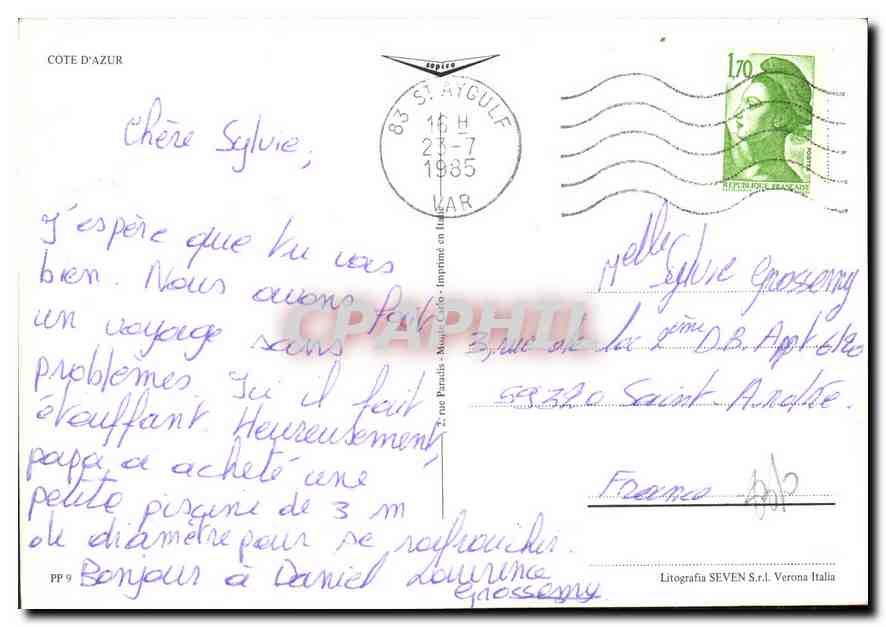 COTE D'AZUR
sapico
83 ST AYGULF
16 H
23-7
1985
VAR
1,70
POSTES
REPUBLIQUE FRANÇAISE
Chère Sylvie,
J'espère que tu vas
bien. Nous avons fait
un voyage sans
problèmes. Ici il fait
étouffant. Heureusement,
papa a acheté une
petite piscine de 3 m
de diamètre pour se rafraichir.
Bonjour à Daniel Laurence
Grossemy
PP 9
2, rue Paradis - Monte Carlo - Imprimé en Italie
CPAPHIL
Melle Sylvie Grossemy
3, rue de la 2ème D.B. Appt 6/20
59320 Saint-André.
France
Litografia SEVEN S.r.l. Verona Italia